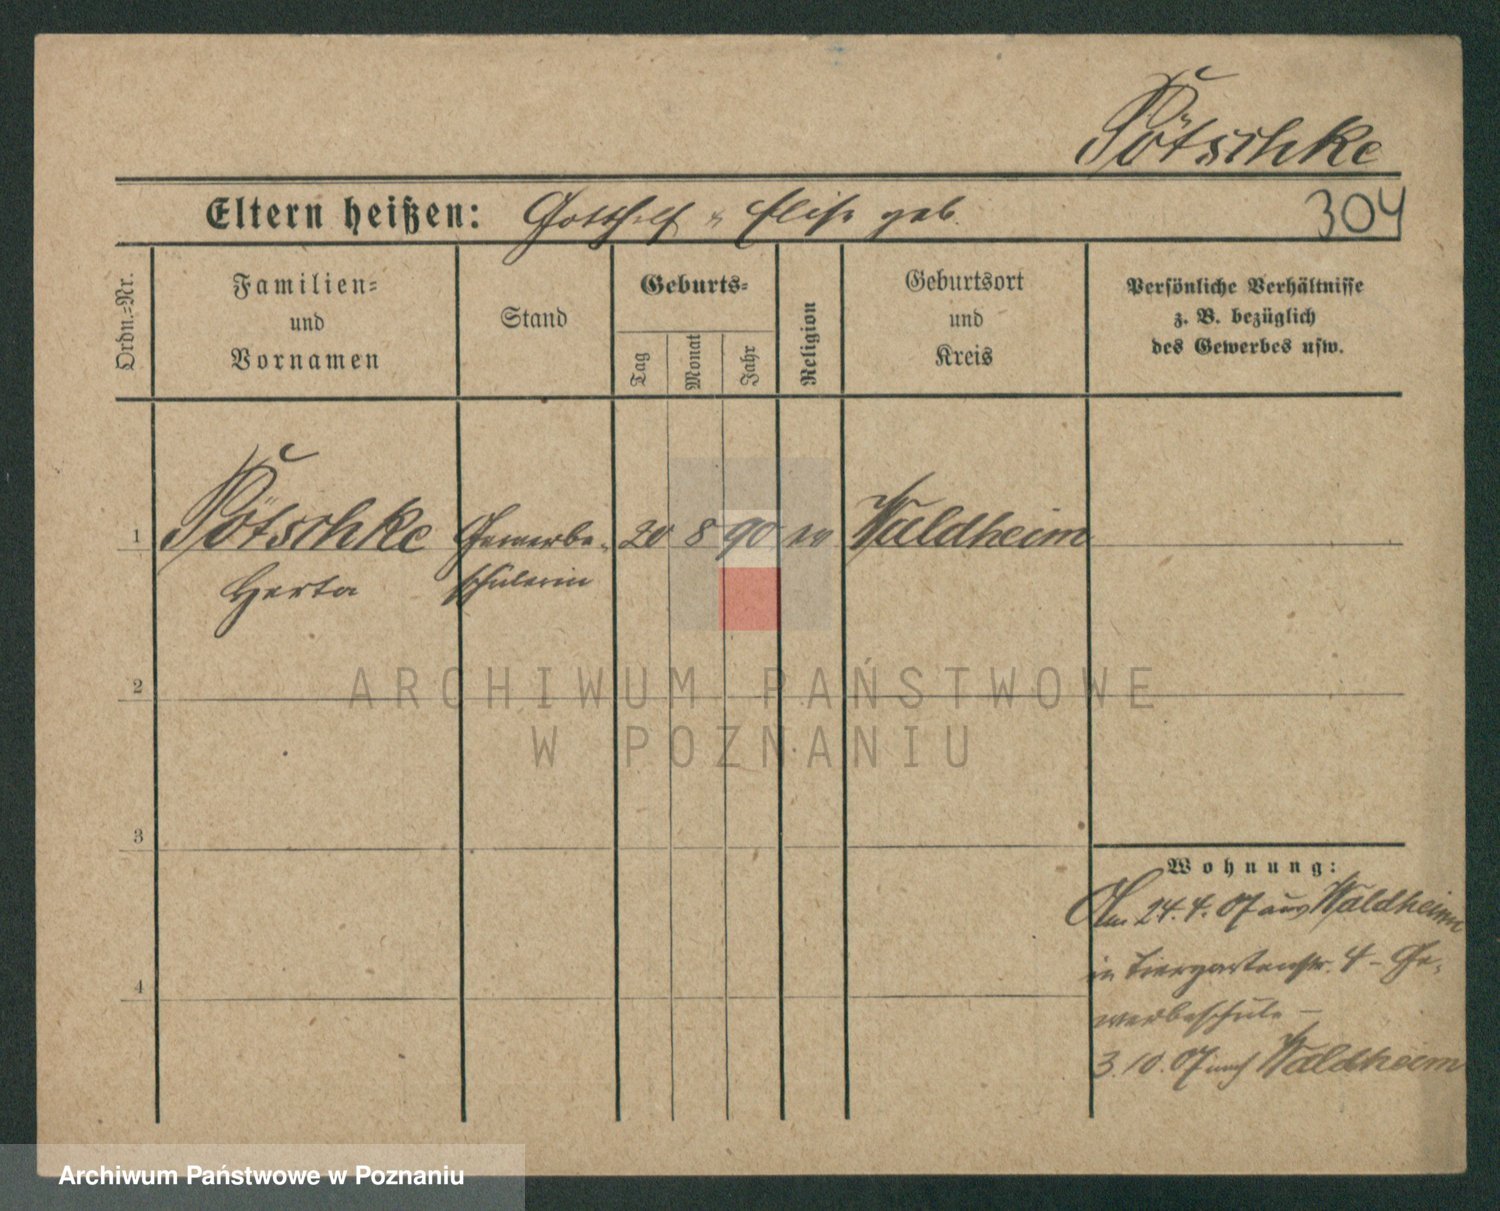 Pötschke
Eltern heißen: Gotthelf u Elise geb.
304
Ordn.=Nr.
Familien=
und
Vornamen
Stand
Geburts=
Tag
Monat
Jahr
Religion
Geburtsort
und
Kreis
Persönliche Verhältnisse
z. B. bezüglich
des Gewerbes usw.
1 Pötschke Gewerbe- 20 8 90 Waldheim
Herta schülerin
2
3
4
Wohnung:
Am 24.4.07 aus Waldheim
in Tiergartenstr. 4 - Ge-
werbeschule -
3.10.07 nach Waldheim
ARCHIWUM PAŃSTWOWE
W POZNANIU
Archiwum Państwowe w Poznaniu